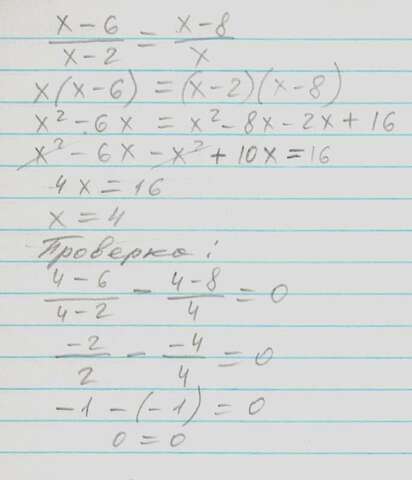 (x-6)/(x-2) = (x-8)/x
x(x-6) = (x-2)(x-8)
x² - 6x = x² - 8x - 2x + 16
x² - 6x - x² + 10x = 16
4x = 16
x = 4
Проверка:
(4-6)/(4-2) - (4-8)/4 = 0
(-2)/2 - (-4)/4 = 0
-1 - (-1) = 0
0 = 0